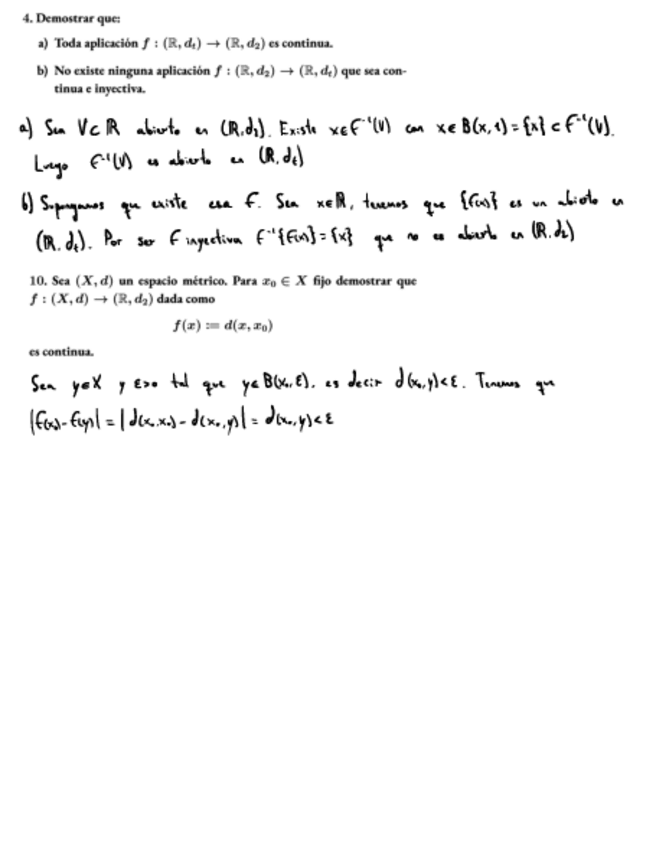 4. Demostrar que:
a) Toda aplicación f : (ℝ, dₜ) → (ℝ, d₂) es continua.
b) No existe ninguna aplicación f : (ℝ, d₂) → (ℝ, dₜ) que sea con-
tinua e inyectiva.
a) Sea V⊂ℝ abierto en (ℝ,d₂). Existe x∈f⁻¹(V) con x∈B(x,1)={x}⊂f⁻¹(V).
Luego f⁻¹(V) es abierto en (ℝ,dₜ)
b) Supongamos que existe esa f. Sea x∈ℝ, tenemos que {f(x)} es un abierto en
(ℝ,dₜ). Por ser f inyectiva f⁻¹{f(x)}={x} que no es abierto en (ℝ,d₂)
10. Sea (X, d) un espacio métrico. Para x₀ ∈ X fijo demostrar que
f : (X, d) → (ℝ, d₂) dada como
f(x) := d(x, x₀)
es continua.
Sea y∈X y ε>0 tal que y∈B(x₀,ε). es decir d(x₀,y)<ε. Tenemos que
|f(x₀)-f(y)| = |d(x₀,x₀)-d(x₀,y)| = d(x₀,y)<ε